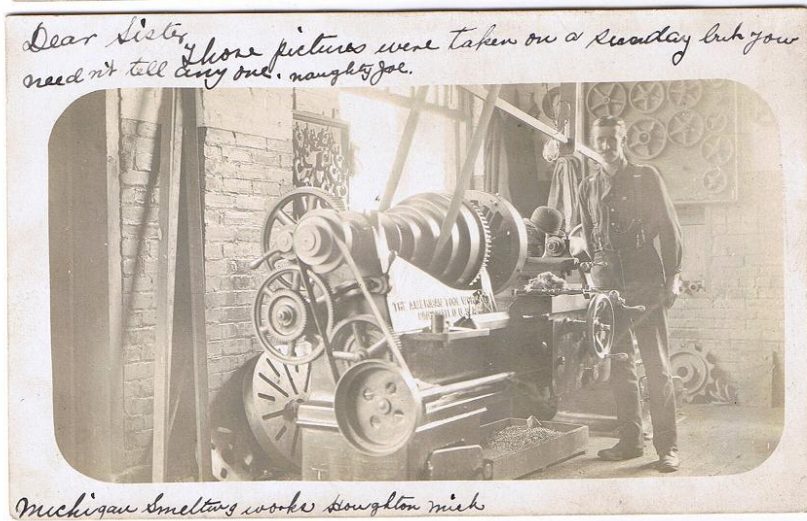 Dear Sister,
Those pictures were taken on a sunday but you
need n't tell any one. naughty Joe.
THE
TOOL
U.S.A.
Michigan Smelting works Houghton Mich